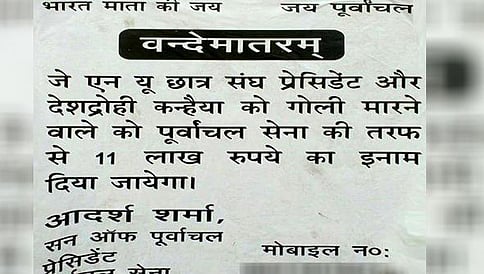 भारत माता की जय जय पूर्वांचल
वन्देमातरम्
जे एन यू छात्र संघ प्रेसिडेंट और
देशद्रोही कन्हैया को गोली मारने
वाले को पूर्वांचल सेना की तरफ
से 11 लाख रुपये का इनाम
दिया जायेगा।
आदर्श शर्मा,
सन ऑफ पूर्वांचल
प्रेसिडेंट मोबाइल न०:
सेना